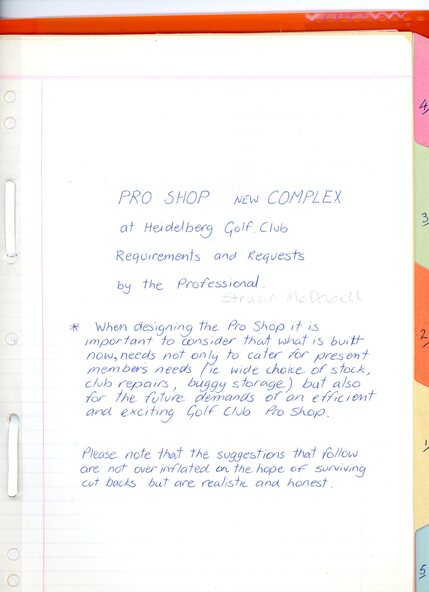 PRO SHOP NEW COMPLEX
at Heidelberg Golf Club
Requirements and Requests
by the Professional.
Struan McDowell
* When designing the Pro Shop it is
important to consider that what is built
now, needs not only to cater for present
members needs (ie wide choice of stock,
club repairs, buggy storage) but also
for the future demands of an efficient
and exciting Golf Club Pro Shop.
Please note that the suggestions that follow
are not over inflated on the hope of surviving
cut backs but are realistic and honest.
4
3
2
1
5